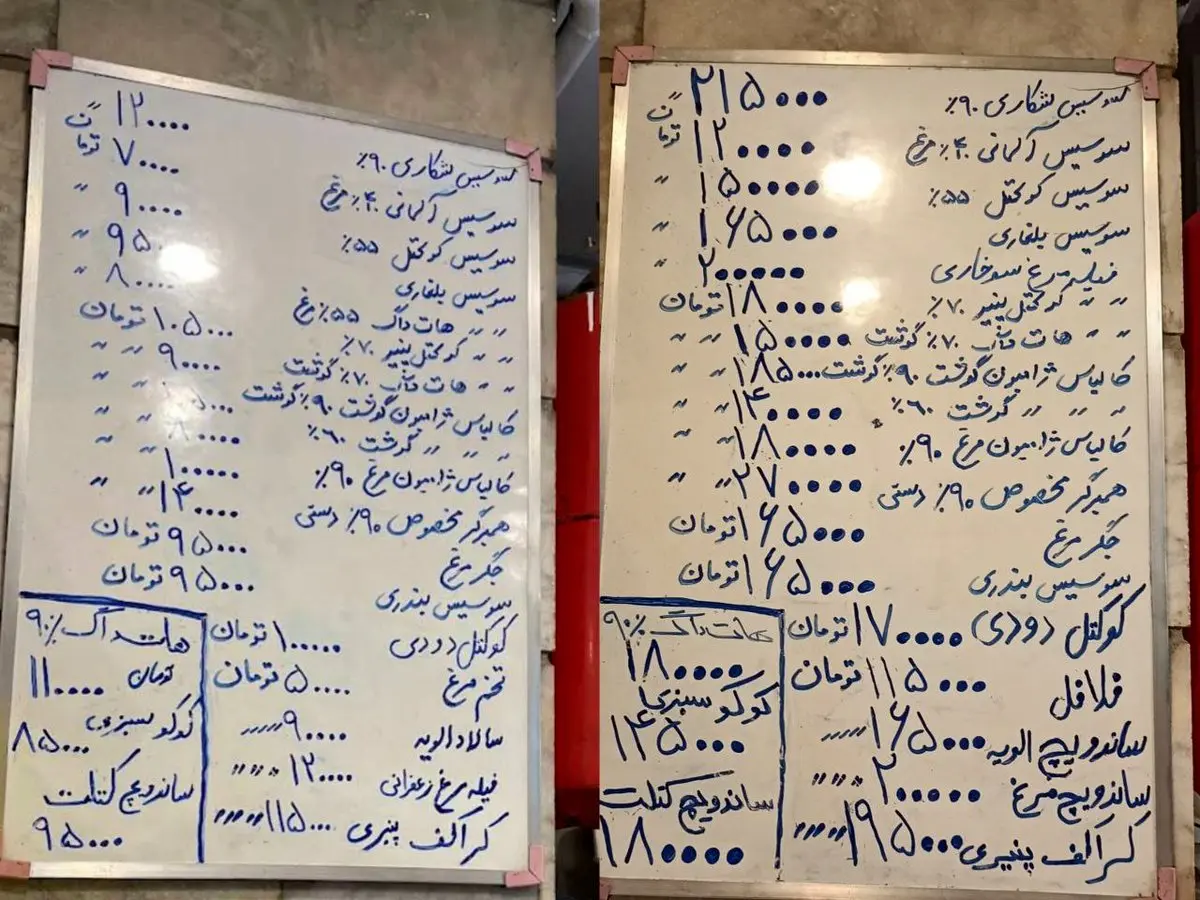 سوسیس شکاری ۹۰٪ ۱۲۰۰۰۰ تومان
سوسیس آلمانی ۴۰٪ مرغ ۷۰۰۰۰ توما
سوسیس کوکتل ۵۵٪ ۹۰۰۰۰ "
سوسیس بلغاری ۹۵۰ "
" " هات داگ ۵۵٪ مرغ ۸۰۰۰۰ "
" " کوکتل پنیر ۷۰٪ ۱۰۵۰۰۰ تومان
" " هات داگ ۷۰٪ گوشت ۹۰۰۰۰ " "
کالباس ژامبون گوشت ۹۰٪ گوشت " "
" " " گوشت ۶۰٪ ۸۰۰۰۰ " "
کالباس ژامبون مرغ ۹۰٪ ۱۰۰۰۰۰ " "
همبرگر مخصوص ۹۰٪ دستی ۱۴۰۰۰۰ " "
جگر مرغ ۹۵۰۰۰ تومان
سوسیس بندری ۹۵۰۰۰ تومان
کوکتل دودی ۱۰۰۰۰۰ تومان
تخم مرغ ۵۰۰۰۰ تومان
سالاد الویه ۹۰۰۰۰ " "
فیله مرغ زعفرانی ۱۲۰۰۰۰ " " "
کراکف پنیری ۱۱۵۰۰۰ " " "
هات داگ ۹۰٪
۱۱۰۰۰۰ تومان
کوکو سبزی
۸۵۰۰۰
ساندویچ کتلت
۹۵۰۰۰
سوسیس شکاری ۹۰٪ ۲۱۵۰۰۰ تومان
سوسیس آلمانی ۴۰٪ مرغ ۱۲۰۰۰۰ توما
سوسیس کوکتل ۵۵٪ ۱۵۰۰۰۰ "
سوسیس بلغاری ۱۶۵۰۰۰ "
فیله مرغ سوخاری ۲۰۰۰۰۰ "
" " کوکتل پنیر ۷۰٪ ۱۸۰۰۰۰ تومان
" " هات داگ ۷۰٪ گوشت ۱۵۰۰۰۰ " "
کالباس ژامبون گوشت ۹۰٪ گوشت ۱۸۵۰۰۰ " "
" " " گوشت ۶۰٪ ۱۴۰۰۰۰ " "
کالباس ژامبون مرغ ۹۰٪ ۱۸۰۰۰۰ " "
همبرگر مخصوص ۹۰٪ دستی ۲۷۰۰۰۰ " "
جگر مرغ ۱۶۵۰۰۰ تومان
سوسیس بندری ۱۶۵۰۰۰ تومان
کوکتل دودی ۱۷۰۰۰۰ تومان
فلافل ۱۱۵۰۰۰ تومان
ساندویچ الویه ۱۶۵۰۰۰ " "
ساندویچ مرغ ۲۰۰۰۰۰ " " "
کراکف پنیری ۱۹۵۰۰۰ " " "
هات داگ ۹۰٪
۱۸۰۰۰۰
کوکو سبزی
۱۴۵۰۰۰
ساندویچ کتلت
۱۸۰۰۰۰